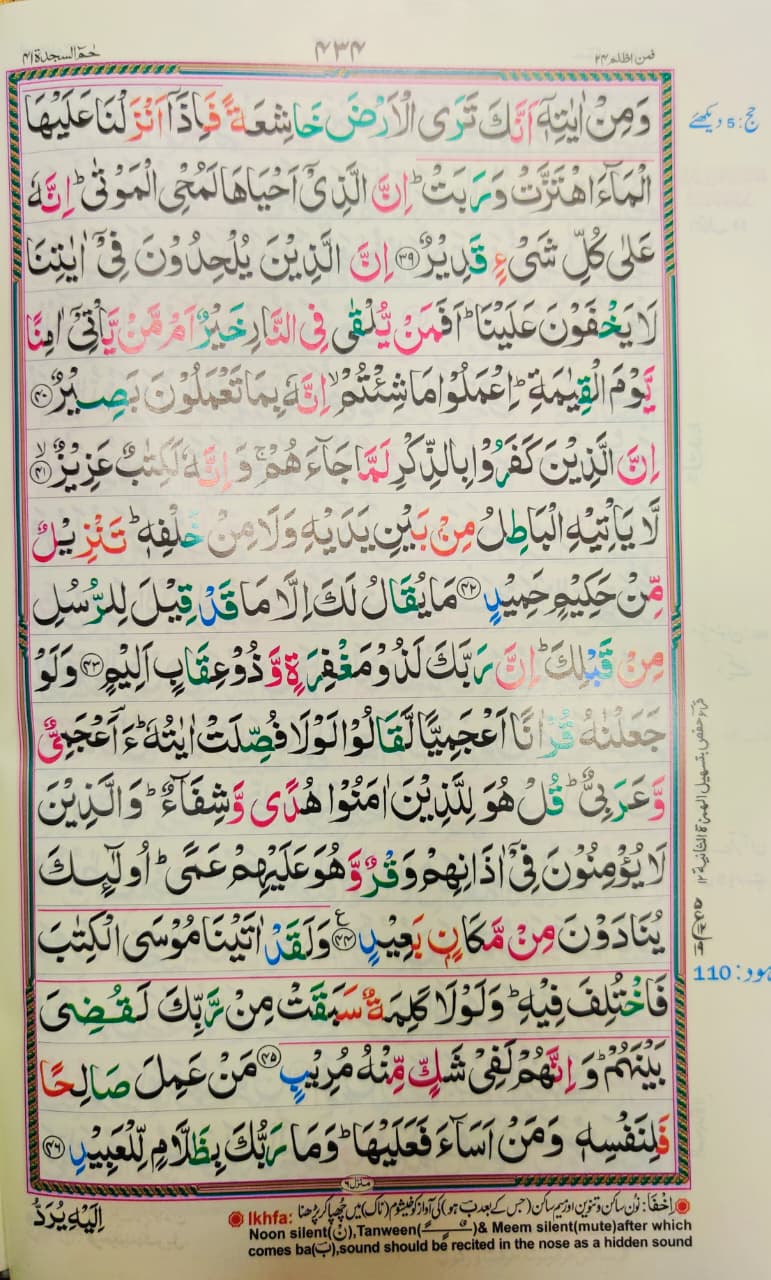 فمن اظلم ۲۴ ۴۳۴ حٰمٓ السجدۃ ۴۱
وَمِنْ اٰيٰتِهٖۤ اَنَّكَ تَرَى الْاَرْضَ خَاشِعَةً فَاِذَاۤ اَنْزَلْنَا عَلَيْهَا
حج: 5 دیکھئے
الْمَآءَ اهْتَزَّتْ وَرَبَتْ ؕ اِنَّ الَّذِيْۤ اَحْيَاهَا لَمُحْىِ الْمَوْتٰى ؕ اِنَّهٗ
عَلٰى كُلِّ شَىْءٍ قَدِيْرٌ ﴿۳۹﴾ اِنَّ الَّذِيْنَ يُلْحِدُوْنَ فِيْۤ اٰيٰتِنَا
لَا يَخْفَوْنَ عَلَيْنَا ؕ اَفَمَنْ يُّلْقٰى فِى النَّارِ خَيْرٌ اَمْ مَّنْ يَّاْتِيْۤ اٰمِنًا
يَّوْمَ الْقِيٰمَةِ ؕ اِعْمَلُوْا مَا شِئْتُمْ ۙ اِنَّهٗ بِمَا تَعْمَلُوْنَ بَصِيْرٌ ﴿۴۰﴾
اِنَّ الَّذِيْنَ كَفَرُوْا بِالذِّكْرِ لَمَّا جَآءَهُمْ ۚ وَاِنَّهٗ لَكِتٰبٌ عَزِيْزٌ ﴿۴۱﴾ ۙ
لَّا يَاْتِيْهِ الْبَاطِلُ مِنْۢ بَيْنِ يَدَيْهِ وَلَا مِنْ خَلْفِهٖ ؕ تَنْزِيْلٌ
مِّنْ حَكِيْمٍ حَمِيْدٍ ﴿۴۲﴾ مَا يُقَالُ لَكَ اِلَّا مَا قَدْ قِيْلَ لِلرُّسُلِ
مِنْ قَبْلِكَ ؕ اِنَّ رَبَّكَ لَذُوْ مَغْفِرَةٍ وَّذُوْ عِقَابٍ اَلِيْمٍ ﴿۴۳﴾ وَلَوْ
جَعَلْنٰهُ قُرْاٰنًا اَعْجَمِيًّا لَّقَالُوْا لَوْلَا فُصِّلَتْ اٰيٰتُهٗ ؕ ءَؔاَعْجَمِىٌّ
وَّعَرَبِىٌّ ؕ قُلْ هُوَ لِلَّذِيْنَ اٰمَنُوْا هُدًى وَّشِفَآءٌ ؕ وَالَّذِيْنَ
لَا يُؤْمِنُوْنَ فِيْۤ اٰذَانِهِمْ وَقْرٌ وَّهُوَ عَلَيْهِمْ عَمًى ؕ اُولٰٓئِكَ
يُنَادَوْنَ مِنْ مَّكَانٍۢ بَعِيْدٍ ﴿۴۴﴾ ع وَلَقَدْ اٰتَيْنَا مُوْسَى الْكِتٰبَ
ہود: 110
فَاخْتُلِفَ فِيْهِ ؕ وَلَوْلَا كَلِمَةٌ سَبَقَتْ مِنْ رَّبِّكَ لَقُضِىَ
بَيْنَهُمْ ؕ وَاِنَّهُمْ لَفِىْ شَكٍّ مِّنْهُ مُرِيْبٍ ﴿۴۵﴾ مَنْ عَمِلَ صَالِحًا
فَلِنَفْسِهٖ وَمَنْ اَسَآءَ فَعَلَيْهَا ؕ وَمَا رَبُّكَ بِظَلَّامٍ لِّلْعَبِيْدِ ﴿۴۶﴾
منزل ۶
اِلَيْهِ يُرَدُّ
اِخْفَا: نون ساکن و تنوین اور میم ساکن (جس کے بعد ب ہو) کی آواز کو خیشوم (ناک) میں چھپا کر پڑھنا
Ikhfa:
Noon silent(نْ),Tanween(ـًـٍـٌ)& Meem silent(mute)after which
comes ba(ب),sound should be recited in the nose as a hidden sound